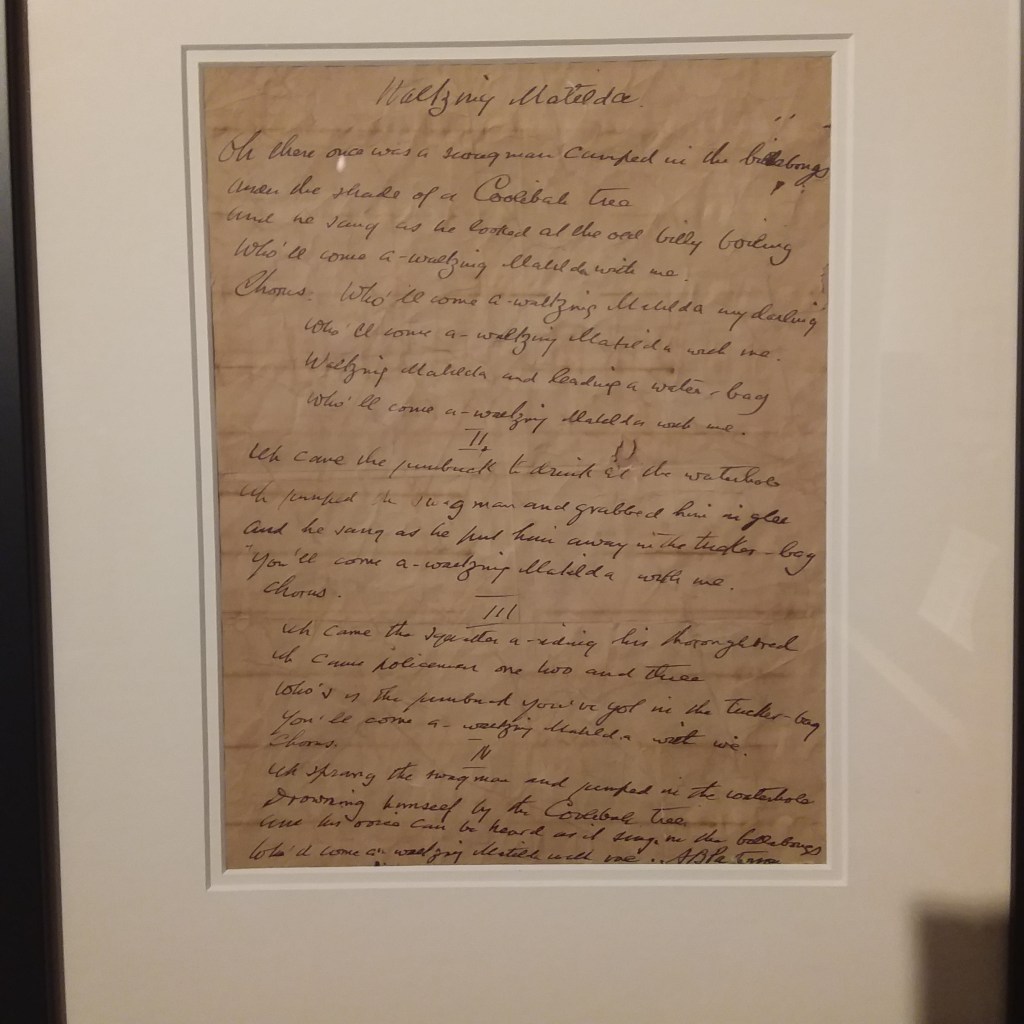 Waltzing Matilda.
Oh there once was a swagman camped in the billabongs
Under the shade of a Coolibah tree
And he sang as he looked at the old billy boiling
Who'll come a-waltzing Matilda with me.
Chorus. Who'll come a-waltzing Matilda my darling
Who'll come a-waltzing Matilda with me.
Waltzing Matilda and leading a water-bag
Who'll come a-waltzing Matilda with me.
II
Up came the jumbuck to drink at the waterhole
Up jumped the swagman and grabbed him in glee
And he sang as he put him away in the tucker-bag
"You'll come a-waltzing Matilda with me.
Chorus.
III
Up came the squatter a-riding his thoroughbred
Up came policeman one two and three
Who's is the jumbuck you've got in the tucker-bag
You'll come a-waltzing Matilda with me.
Chorus.
IV
Up sprang the swagman and jumped in the waterhole
Drowning himself by the Coolibah tree
And his voice can be heard as it sings in the billabongs
Who'll come a-waltzing Matilda with me.